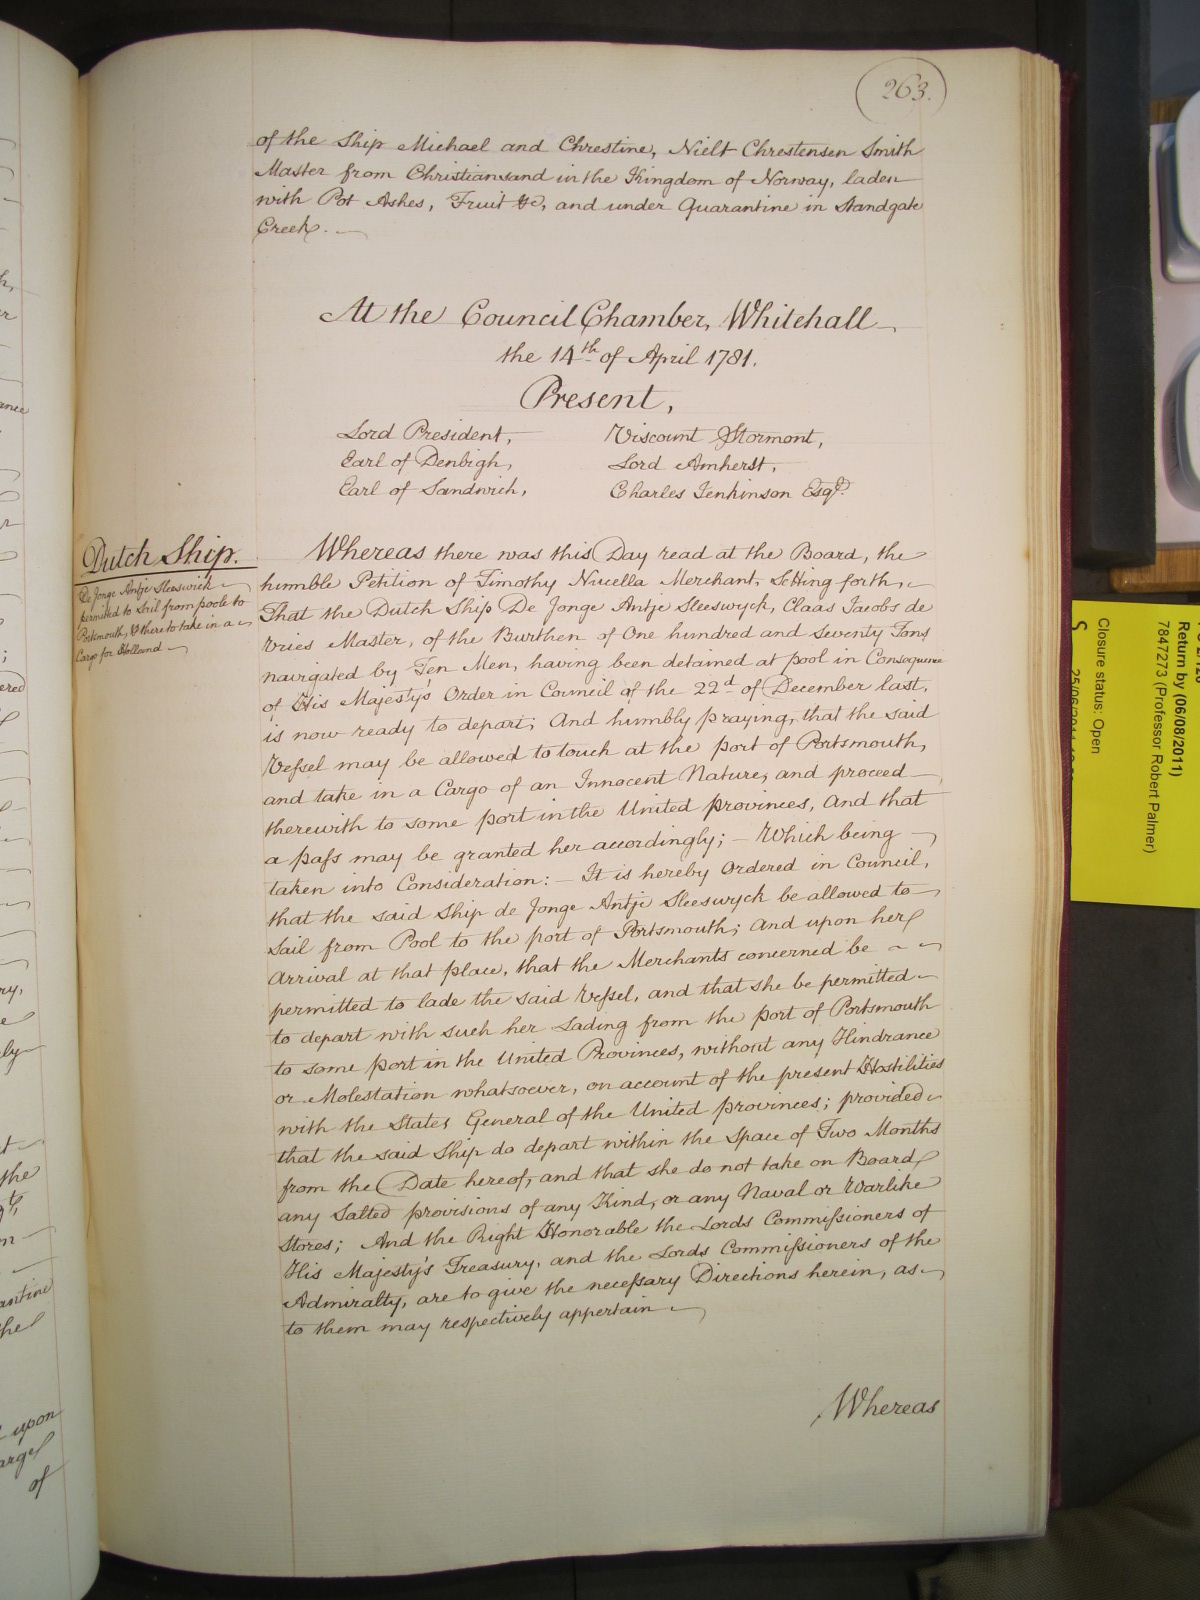 263.
of the Ship Michael and Chrestine, Nielt Chrestensen Smith
Master from Christiansand in the Kingdom of Norway, laden
with Pot Ashes, Fruit &c, and under Quarantine in Standgate
Creek.
At the Council Chamber, Whitehall
the 14th of April 1781.
Present,
Lord President, Viscount Stormont,
Earl of Denbigh, Lord Amherst,
Earl of Sandwich, Charles Jenkinson Esqr.
Dutch Ship.
De Jonge Antje Sleeswick
permitted to Sail from poole to
Portsmouth, & there to take in a
Cargo for Holland
Whereas there was this Day read at the Board, the
humble Petition of Timothy Nucella Merchant, Setting forth,
That the Dutch Ship De Jonge Antje Sleeswyck, Claas Jacobs de
Vries Master, of the Burthen of One hundred and Seventy Tons
navigated by Ten Men, having been detained at pool in Consequence
of His Majesty's Order in Council of the 22d of December last,
is now ready to depart; And humbly praying, that the said
Vessel may be allowed to touch at the port of Portsmouth,
and take in a Cargo of an Innocent Nature, and proceed
therewith to some port in the United provinces, And that
a pass may be granted her accordingly; – Which being
taken into Consideration: – It is hereby Ordered in Council,
that the said Ship de Jonge Antje Sleeswyck be allowed to
Sail from Pool to the port of Portsmouth; And upon her
Arrival at that place, that the Merchants concerned be
permitted to lade the said Vessel, and that she be permitted
to depart with such her Lading from the port of Portsmouth
to some port in the United Provinces, without any Hindrance
or Molestation whatsoever, on account of the present Hostilities
with the States General of the United provinces; provided
that the said Ship do depart within the Space of Two Months
from the Date hereof, and that she do not take on Board
any Salted provisions of any Kind, or any Naval or Warlike
Stores; And the Right Honorable the Lords Commissioners of
His Majesty's Treasury, and the Lords Commissioners of the
Admiralty, are to give the necessary Directions herein, as
to them may respectively appertain
Whereas
Return by (06/08/2011)
7847273 (Professor Robert Palmer)
Closure status: Open